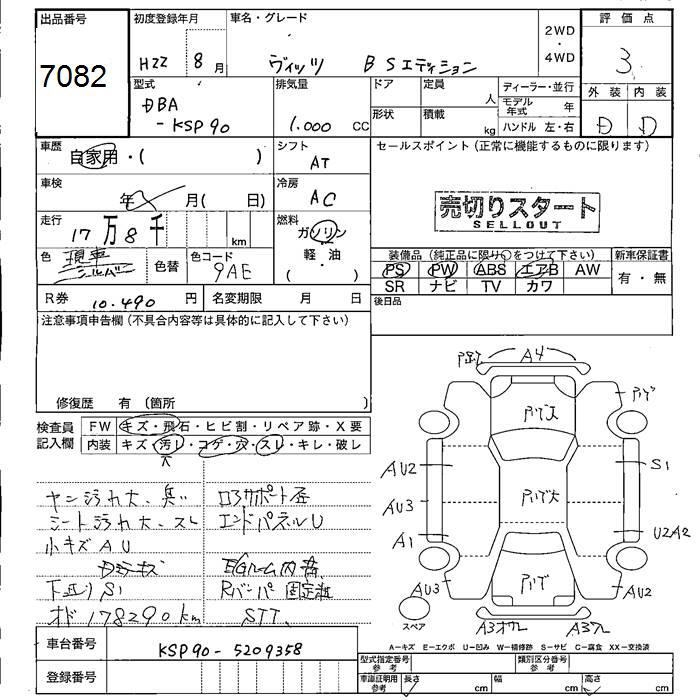 出品番号
7082
初度登録年月
H22 8月
車名・グレード
ヴィッツ B Sエディション
2WD
・
4WD
評価点
3
外装 内装
D D
型式
DBA
-KSP90
排気量
1.000 cc
ドア
定員
人
形状
積載
kg
ディーラー・並行
モデル年式 年
ハンドル 左・右
車歴
自家用・( )
シフト
AT
車検
年 月( 日)
冷房
AC
走行
17万8千 km
燃料
ガソリン
軽・油
( )
色
現車
シルバー
色替
色コード
9AE
R券 10.490円
名変期限 月 日
セールスポイント(正常に機能するものに限ります)
売切りスタート
SELLOUT
装備品(純正品に限り○をつけて下さい)
新車保証書
PS PW ABS エアB AW
SR ナビ TV カワ
有・無
後日品
注意事項申告欄(不具合内容等は具体的に記入して下さい)
修復歴 有 (箇所 )
検査員
記入欄
FW キズ・飛石・ヒビ割・リペア跡・X要
内装 キズ・汚レ・コゲ・穴・スレ・キレ・破レ
シート汚れ大、スレ
小キズAU
下廻りS1
オド178290km
ロアサポート歪
エンドパネルU
Rバンパー固定
STT.
A4
AU2
AU3
A1
AU3
S1
U2A2
AU2
スペア
A-キズ E-エクボ U-凹み W-補修跡 S-サビ C-腐食 XX-交換済
車台番号
KSP90-5209358
登録番号
型式指定番号
参考
類別区分番号
参考
車庫証明用
参考
長さ cm
幅 cm
高さ cm